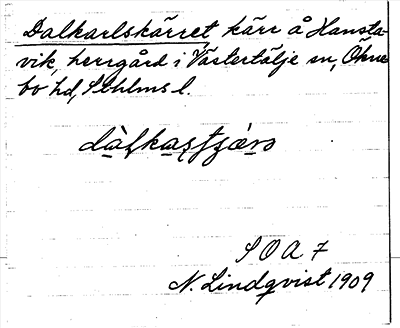 Dalkarlskärret, kärr å Hansta-
vik, herrgård i Västertälje sn, Öknе
bo hd, Sthlms l.
SOA 7
N. Lindqvist 1909